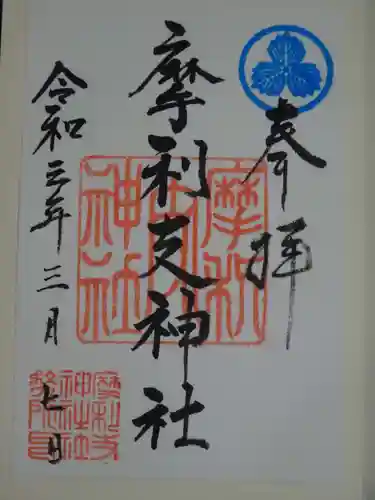 奉拝
摩利支神社
令和三年三月七日
摩利支神社
摩利支神社